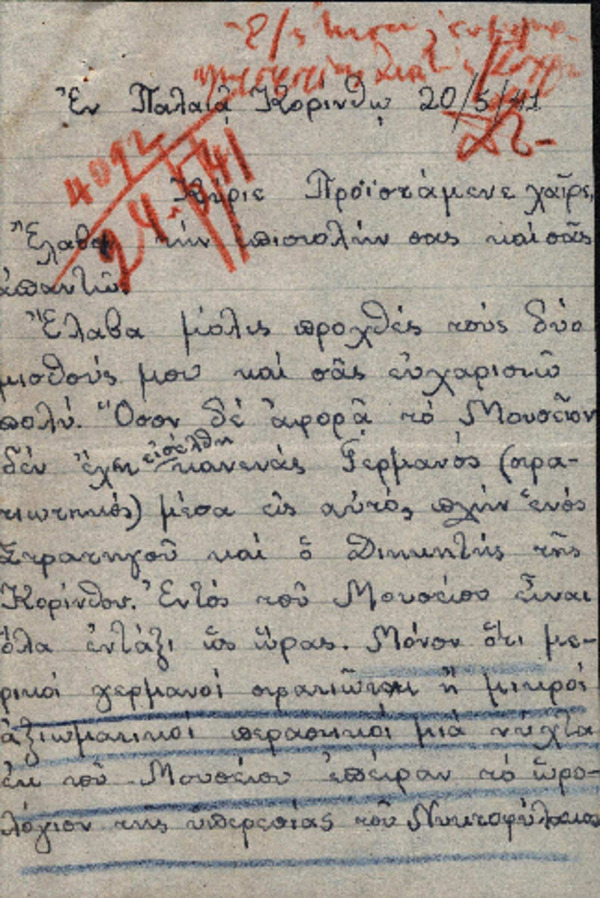 Ἐν Παλαιᾷ Κορίνθῳ 20/5/41
4092
24
41
Κύριε Προϊστάμενε χαῖρε,
Ἔλαβα τήν ἐπιστολήν σας καί σᾶς
ἀπαντῶ.
Ἔλαβα μόλις προχθές τούς δύο
μισθούς μου καί σᾶς εὐχαριστῶ
πολύ. Ὅσον δέ ἀφορᾷ τό Μουσεῖον
δέν ἔχει εἰσέλθη κανενάς Γερμανός (στρα-
τιωτικός) μέσα εἰς αὐτό, πλήν ἑνός
Στρατηγοῦ καί ὁ Διηκητής τῆς
Κορίνθου. Ἐντός τοῦ Μουσείου εἶναι
ὅλα ἐντάξι ὡς ὥρας. Μόνον ὅτι με-
ρικοί γερμανοί στρατιῶται ἤ μικροί
ἀξιωματικοί περαστικοί μιά νύχτα
ἐκ τοῦ Μουσείου ἐπείραν τό ὡρο-
λόγιον τῆς ὑπερεσίας τοῦ Νυκτοφύλακος